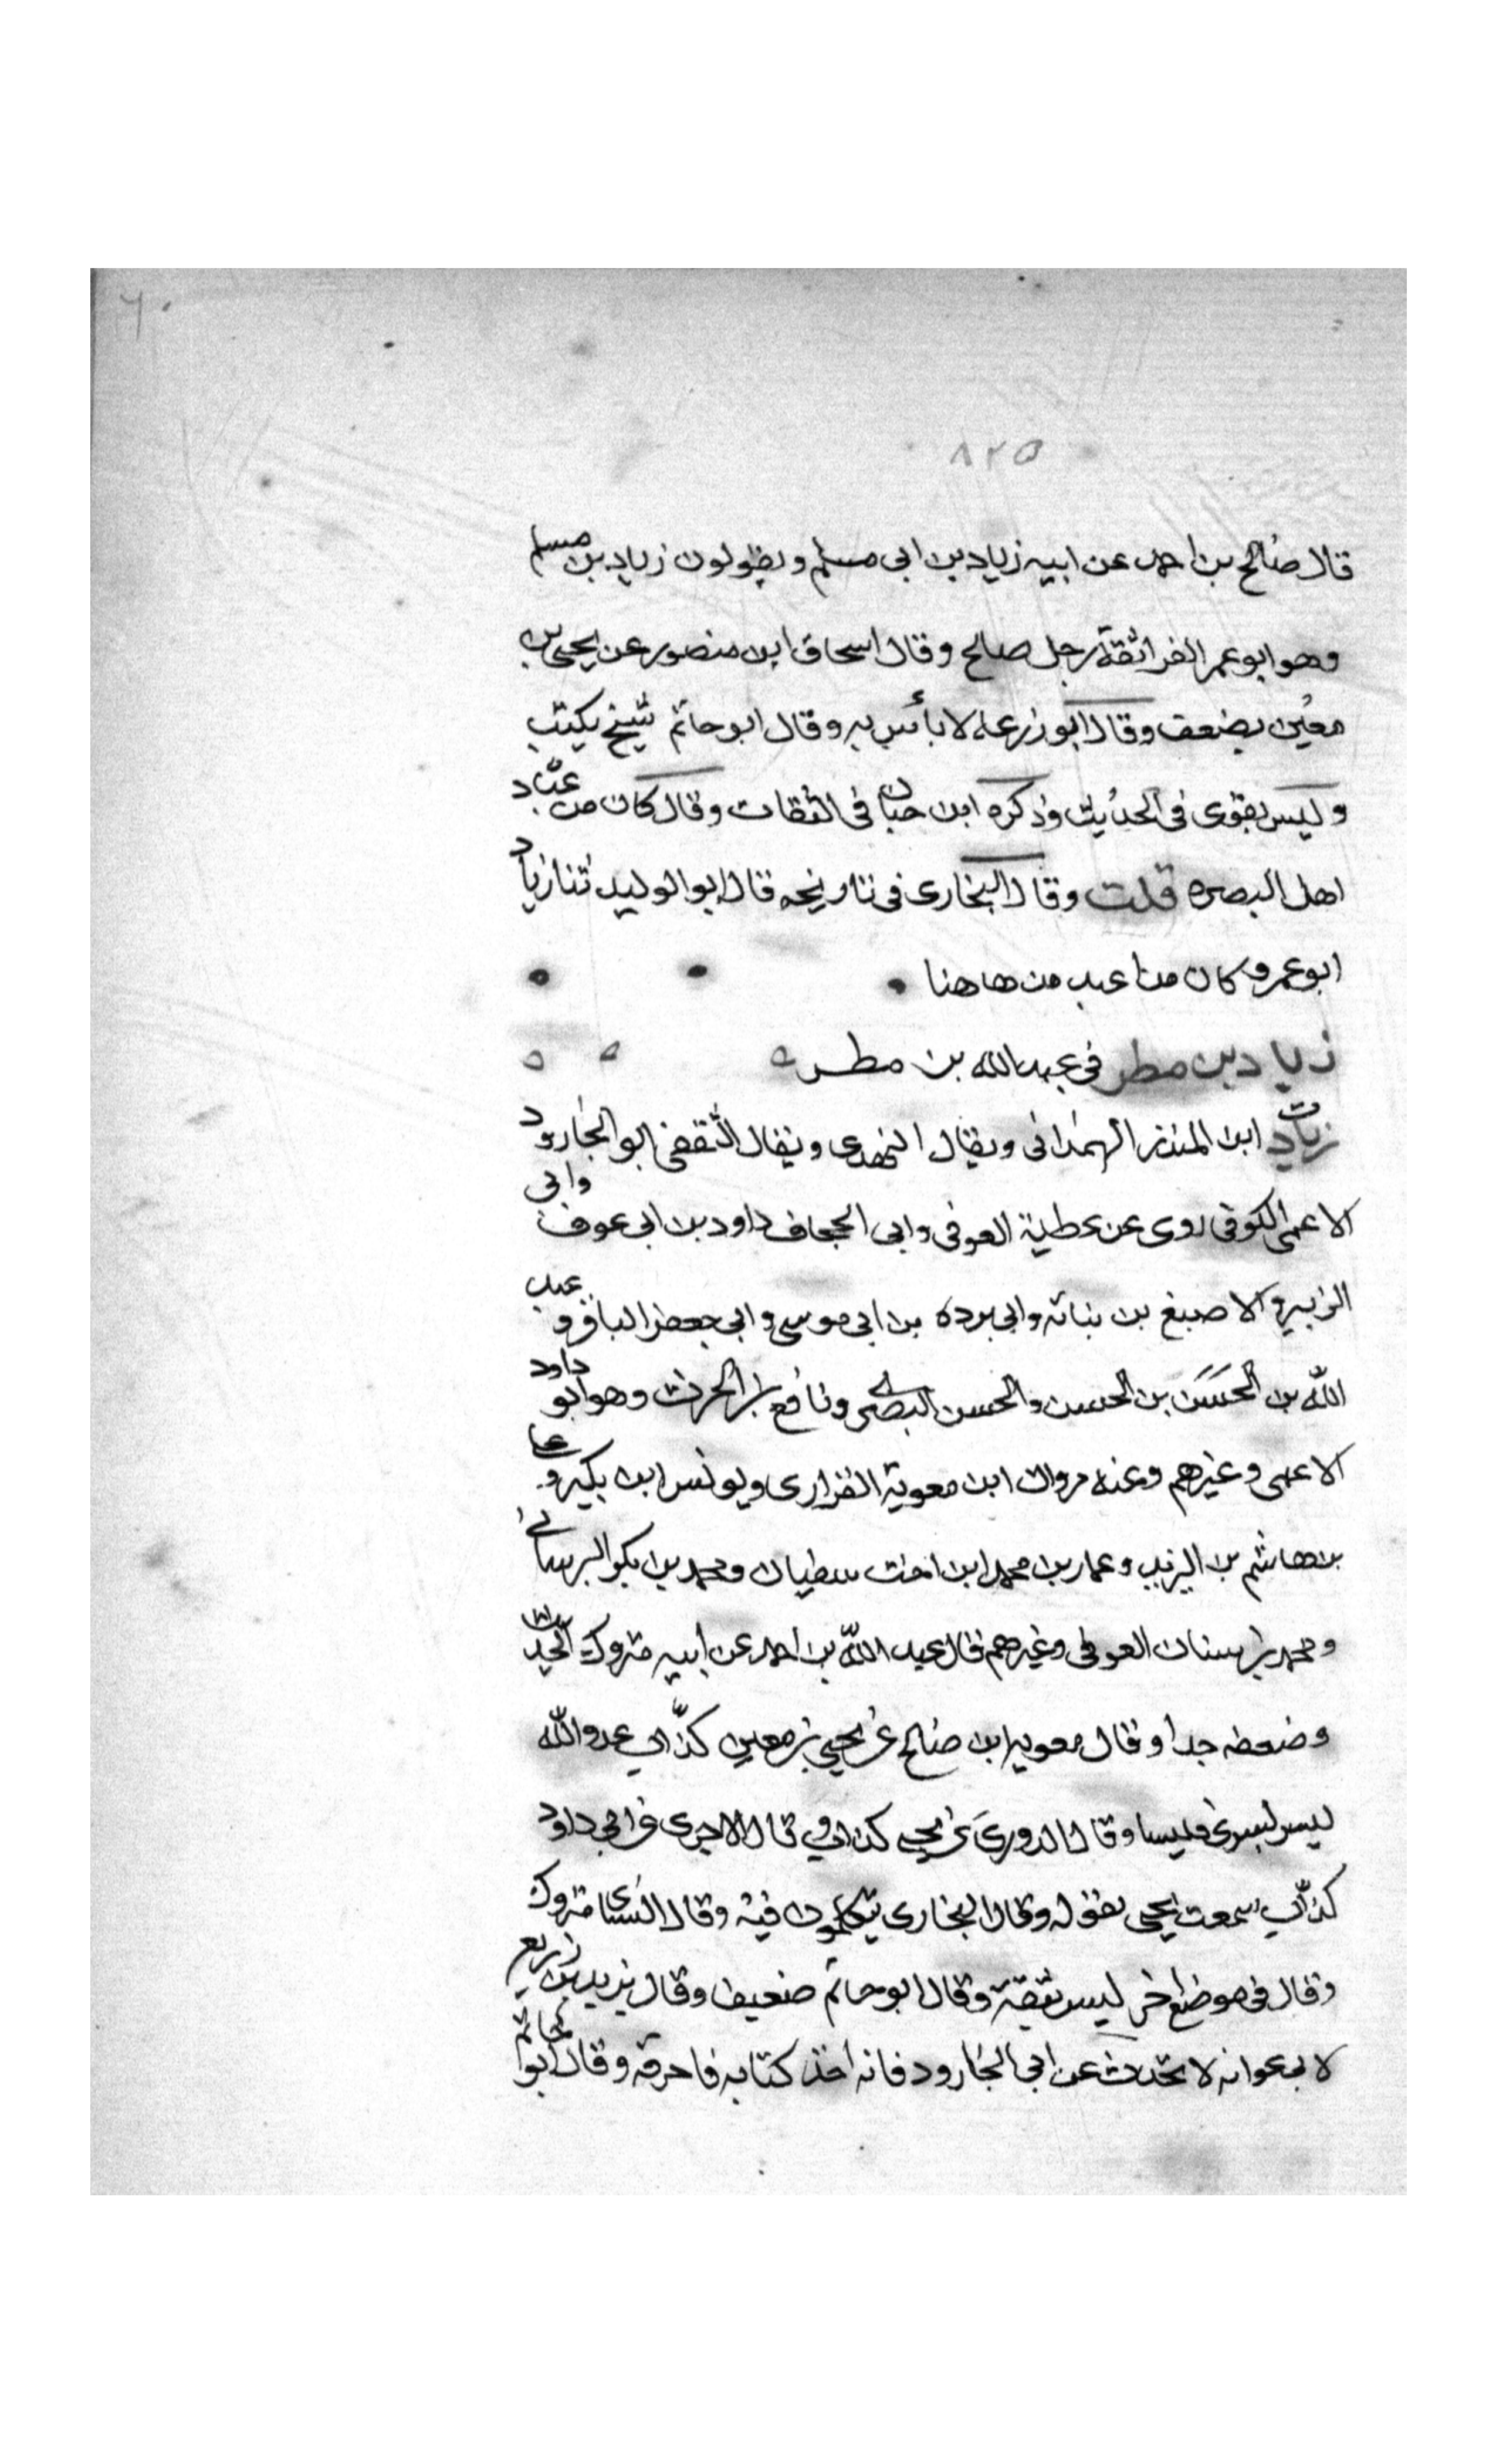 ٦٠
٨٢٥
قال صالح بن احمد عن ابيه زياد بن ابي مسلم ويقولون زياد بن مسلم
وهو ابو عمر الفرا ثقة رجل صالح وقال اسحاق ابن منصور عن يحيى بن
معين يضعف وقال ابو زرعه لا بأس به وقال ابو حاتم شيخ يكتب
وليس بقوى فى الحديث وذكره ابن حبان فى الثقات وقال كان من عباد
اهل البصره قلت وقال البخارى فى تاريخه قال ابو الوليد ثنا زياد
ابو عمر وكان من اعبد من هاهنا
زياد بن مطر فى عبد الله بن مطر
ت زياد ابن المنذر الهمدانى ويقال النهدى ويقال الثقفى ابو الجارود
الاعمى الكوفى روى عن عطية العوفى وابى الجحاف داود بن ابى عوف وابى
الزبير والاصبغ بن نباته وابى برده بن ابى موسى وابى جعفر الباقر وعبد
الله بن الحسن بن الحسن والحسن البصرى ونافع بن الحرث وهو ابو داود
الاعمى وغيرهم وعنه مروان ابن معوية الفزارى ويونس ابن بكير وعلى
بن هاشم بن البريد وعمار بن محمد ابن اخت سفيان ومحمد بن بكر البرسانى
ومحمد بن سنان العوفى وغيرهم قال عبد الله بن احمد عن ابيه متروك الحديث
وضعفه جدا وقال معويه ابن صالح عن يحيى بن معين كذاب عدو الله
ليس يسوى فليسا وقال الدورى عن يحيى كذاب وقال الاجرى عن ابى داود
كذاب سمعت يحيى يقوله وقال البخارى يتكلمون فيه وقال النسائى متروك
وقال فى موضع اخر ليس بثقة وقال ابو حاتم ضعيف وقال يزيد بن زريع
لابى عوانه لا تحدث عن ابى الجارود فانه اخذ كتابه فاحرقه وقال ابو حاتم